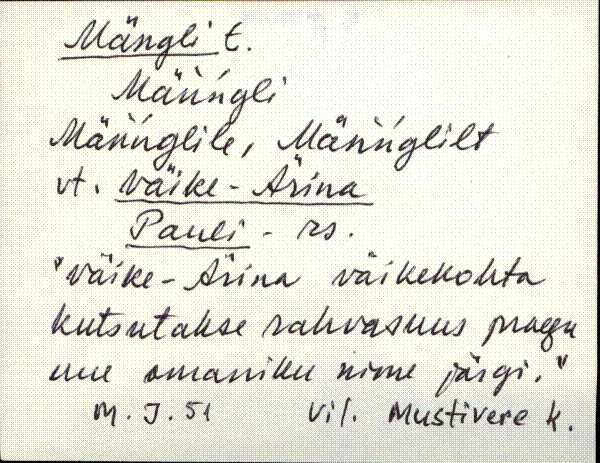 Mängli t.
Mäńńgli
Mäńńglile, Mäńńglilt
vt. Väike-Ärina
Pauli - rs.
"Väike-Ärina väikekohta
kutsutakse rahvasuus praegu
uue omaniku nime järgi."
M.J. 51 Vil. Mustivere k.